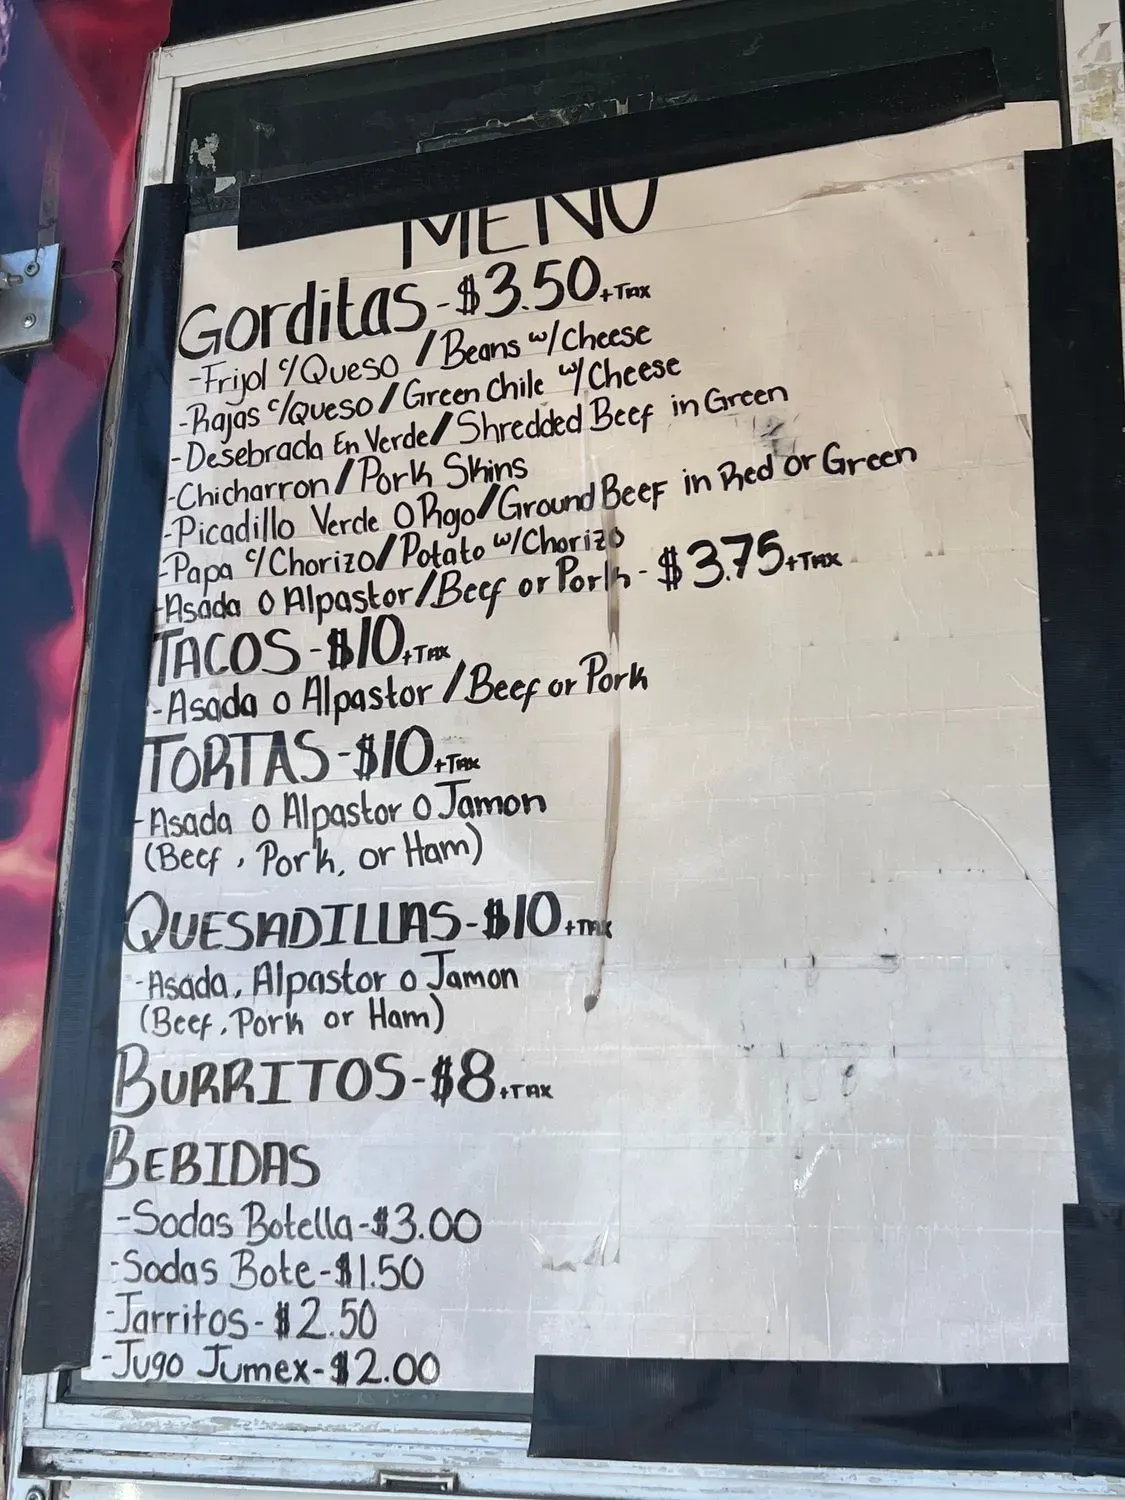 MENU
Gorditas - $3.50 +Tax
-Frijol c/Queso / Beans w/Cheese
-Rajas c/Queso / Green Chile w/Cheese
-Desebrada En Verde / Shredded Beef in Green
-Chicharron / Pork Skins
-Picadillo Verde O Rojo / Ground Beef in Red or Green
-Papa c/Chorizo / Potato w/Chorizo
-Asada O Alpastor / Beef or Pork - $3.75 +TAX
TACOS - $10 +TAX
-Asada o Alpastor / Beef or Pork
TORTAS - $10 +Tax
-Asada O Alpastor O Jamon
(Beef, Pork, or Ham)
QUESADILLAS - $10 +TAX
-Asada, Alpastor o Jamon
(Beef, Pork or Ham)
BURRITOS - $8 +TAX
BEBIDAS
-Sodas Botella - $3.00
-Sodas Bote - $1.50
-Jarritos - $2.50
-Jugo Jumex - $2.00